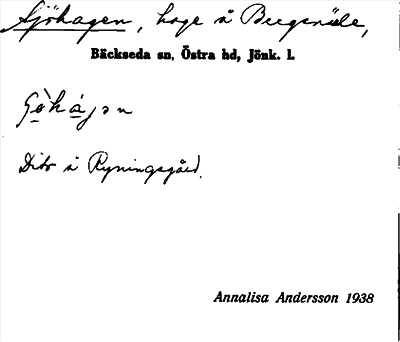 Sjöhagen, hage å Bergsnäle,
Bäckseda sn, Östra hd, Jönk. l.
Dito å Ryningsgård.
Annalisa Andersson 1938